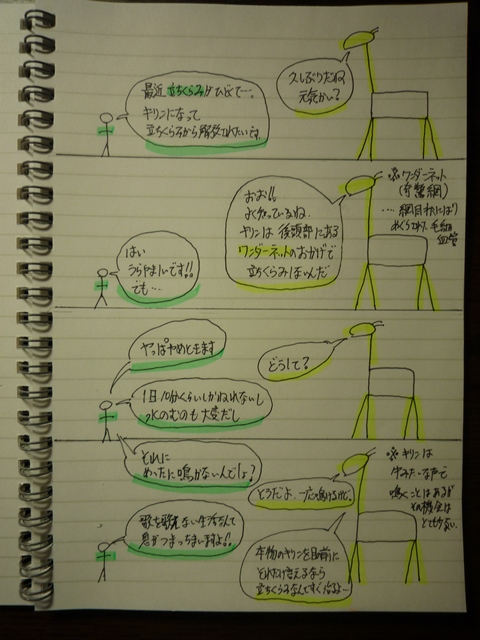 久しぶりだね
元気かい?
最近立ちくらみがひどくて…。
キリンになって
立ちくらみから解放されたいです。
おお!!
よく知っているね。
キリンは後頭部にある
ワンダーネットのおかげで
立ちくらみはないんだ
※ワンダーネット
(奇驚網)
…網目状にはり
めぐらされた毛細
血管
はい
うらやましいです!!
でも…
やっぱやめときます
どうして?
1日10分くらいしかねれないし
水のむのも大変だし
それに
めったに鳴かないんでしょ?
どうだよ、一応鳴けるけど。
※キリンは
牛みたいな声で
鳴くことはあるが
その機会は
とても少ない
歌を歌えない生活なんて
息がつまっちまいますよ!!
本物のキリンを目前に
それだけ言えるなら
立ちくらみなんてすぐ治るよ…